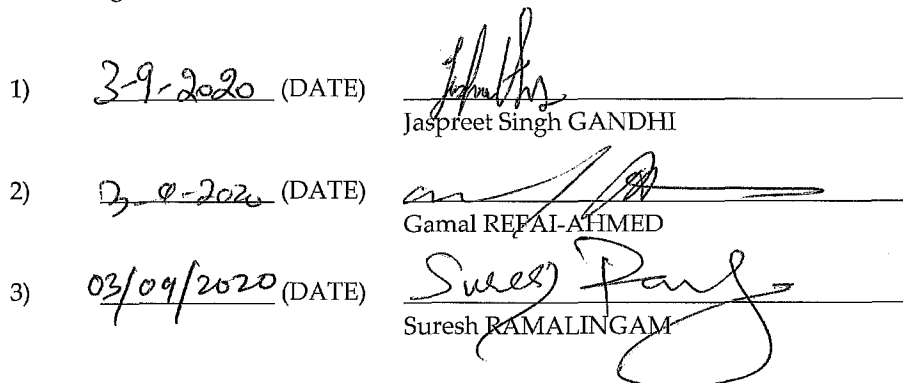 1) 3-9-2020 (DATE)
Jaspreet Singh GANDHI
2) 3-9-2020 (DATE)
Gamal REFAI-AHMED
3) 03/09/2020 (DATE)
Suresh
Suresh RAMALINGAM